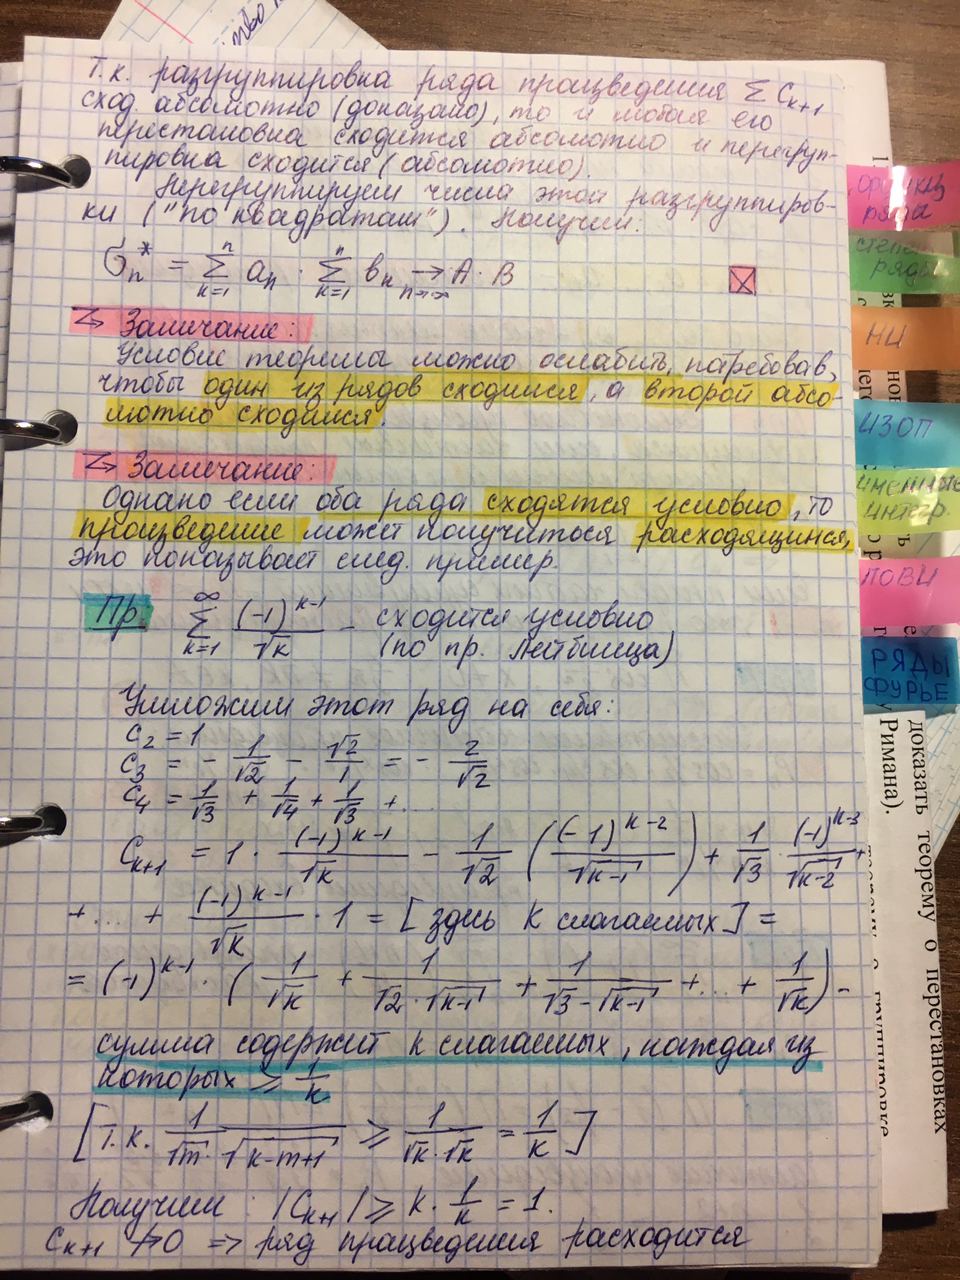 Т.к. разгруппировка ряда произведения ∑ C_{k+1}
сход. абсолютно (доказано), то и любая его
перестановка сходится абсолютно и перегруп-
пировка сходится (абсолютно).
Перегруппируем числа этой разгруппиров-
ки ("по квадратам"). Получим:
σ_n^* = ∑_{k=1}^{n} a_n · ∑_{k=1}^{n} b_n →_{n→∞} A · B
Замечание:
Условие теоремы можно ослабить, потребовав,
чтобы один из рядов сходился, а второй абсо-
лютно сходился.
Замечание:
Однако если оба ряда сходятся условно, то
произведение может получиться расходящимся,
это показывает след. пример.
Пр. ∑_{k=1}^{∞} (-1)^{k-1}/√k - сходится условно
(по пр. Лейбница)
Умножим этот ряд на себя:
C_2 = 1
C_3 = - 1/√2 - √2/1 = - 2/√2
C_4 = 1/√3 + 1/√4 + 1/√3 + ...
C_{k+1} = 1 · (-1)^{k-1}/√k - 1/√2 ((-1)^{k-2}/√(k-1)) + 1/√3 · (-1)^{k-3}/√(k-2) +
+ ... + (-1)^{k-1}/√k · 1 = [здесь k слагаемых] =
= (-1)^{k-1} · (1/√k + 1/(√2 · √(k-1)) + 1/(√3 - √(k-1)) + ... + 1/√k) -
сумма содержит k слагаемых, каждая из
которых ⩾ 1/k
[т.к. 1/(√m · √(k-m+1)) ⩾ 1/(√k · √k) = 1/k]
Получим: |C_{k+1}| ⩾ k · 1/k = 1.
C_{k+1} ↛ 0 ⇒ ряд произведения расходится
ряды
степ
ряды
НИ
ИЗОП
именные
интегр.
ПОВИ
РЯДЫ
ФУРЬЕ
доказать теорему о перестановках
Римана).